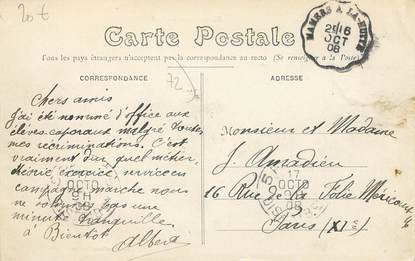 20 €
Carte Postale
Tous les pays étrangers n'acceptent pas la correspondance au recto (Se renseigner à la Poste)
CORRESPONDANCE
72
Chers amis
j'ai été nommé d'office aux
élèves-caporaux malgré toutes
mes récriminations. C'est
vraiment dur quel métier,
théorie, exercice, service en
campagne, marche nous
ne pas une
minute tranquille
à Bientôt
Albert
ADRESSE
MAMERS A LA-HUTTE
16
OCT
08
Monsieur et Madame
J. Amadieu
16 Rue de la Folie Méricourt
Paris (XIe)
17
OCTO
08